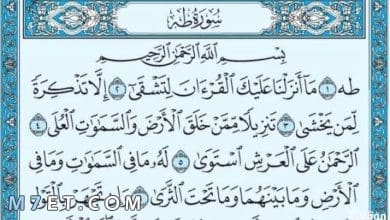 سُورَةُ طه
بِسْمِ اللَّهِ الرَّحْمَٰنِ الرَّحِيمِ
طه ١ مَا أَنزَلْنَا عَلَيْكَ الْقُرْءَانَ لِتَشْقَىٰ ٢ إِلَّا تَذْكِرَةً
لِّمَن يَخْشَىٰ ٣ تَنزِيلًا مِّمَّنْ خَلَقَ الْأَرْضَ وَالسَّمَٰوَٰتِ الْعُلَى ٤
الرَّحْمَٰنُ عَلَى الْعَرْشِ اسْتَوَىٰ ٥ لَهُ مَا فِي السَّمَٰوَٰتِ وَمَا فِي
الْأَرْضِ وَمَا بَيْنَهُمَا وَمَا تَحْتَ الثَّرَىٰ
M7ET.COM